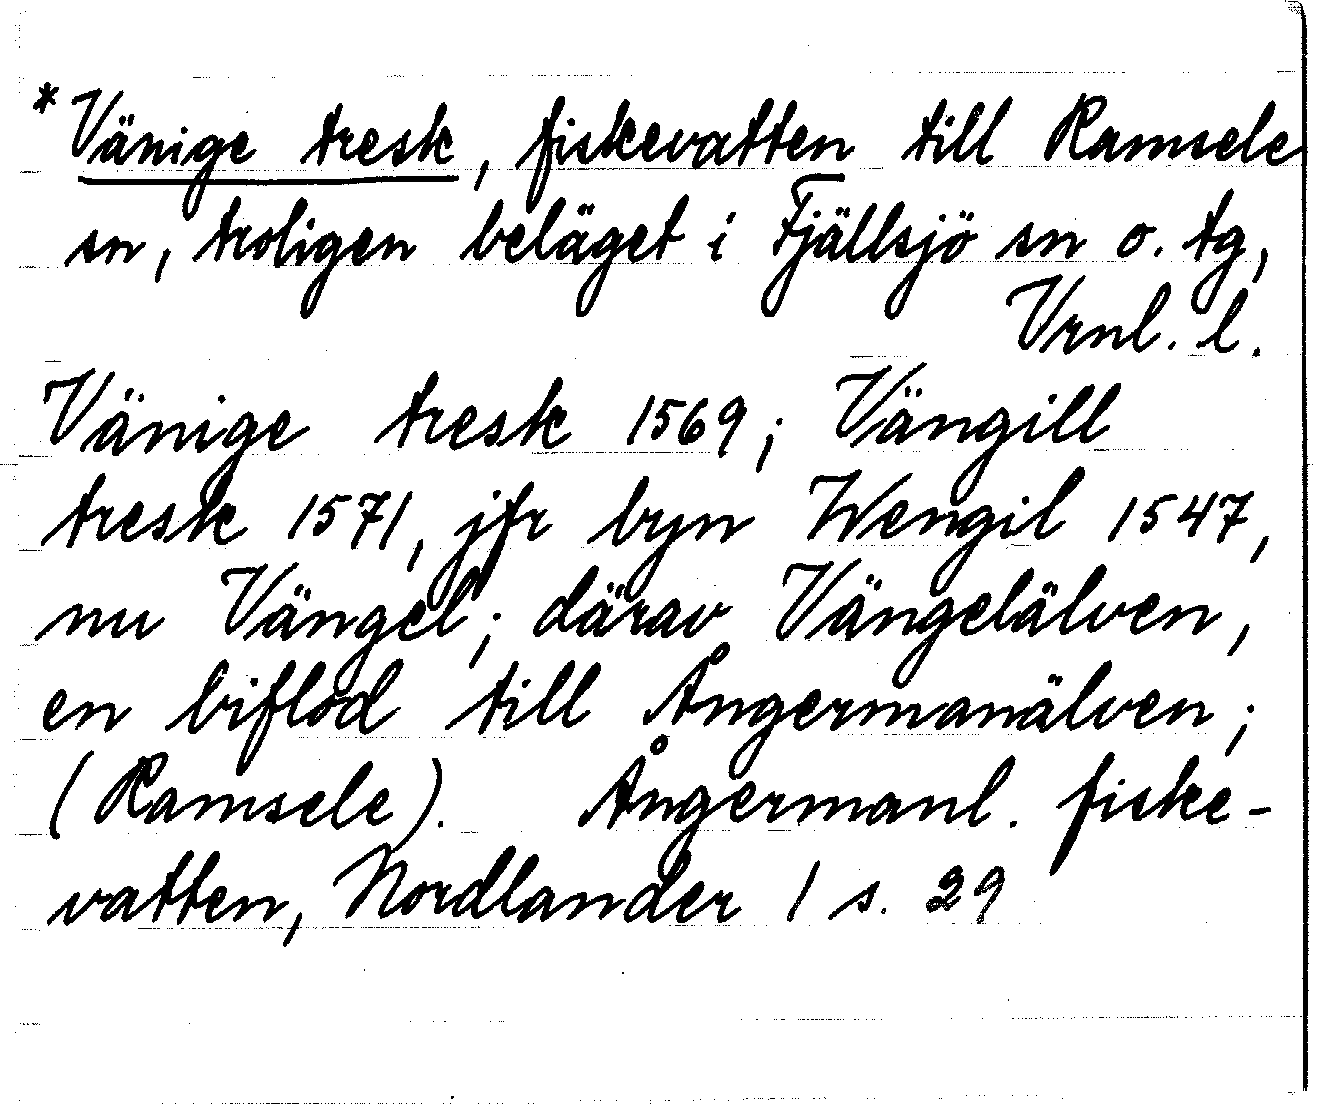 * Vänige tresk, fiskevatten till Ramsele
sn, troligen beläget i Fjällsjö sn o. tg,
Vrnl. l.
Vänige tresk 1569; Vängill
tresk 1571, jfr byn Wengil 1547,
nu Vängel; därav Vängelälven,
en biflod till Ångermanälven;
(Ramsele). Ångermanl. fiske-
vatten, Nordlander 1 s. 29